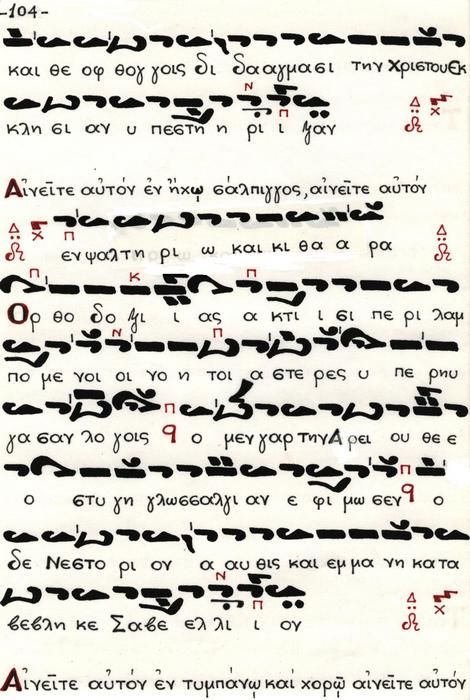 -104-
και θε οφ θογ γοις δι δααγμασι την Χριστου Εκ
κλη σι αν υ πεστη η ρι ι ξαν
Αἰνεῖτε αὐτόν ἐν ἤχῳ σάλπιγγος, αἰνεῖτε αὐτόν
εν ψαλτη ρι ω και κι θα α ρα
Ορ θο δο ξι ι ας α κτι ι σι πε ρι λαμ
πο με νοι οι νο η τοι α στε ρες υ πε ρηυ
γα σαν λο γοις ο μεν γαρ την Αρει ου θε ε
ο στυ γη γλωσσαλγι αν ε φι μω σεν ο
δε Νεστο ρι ον α αυ θις και εμ μα νη κατα
βεβλη κε Σαβε ελ λι ι ον
Αἰνεῖτε αὐτόν ἐν τυμπάνῳ καί χορῷ αἰνεῖτε αὐτόν